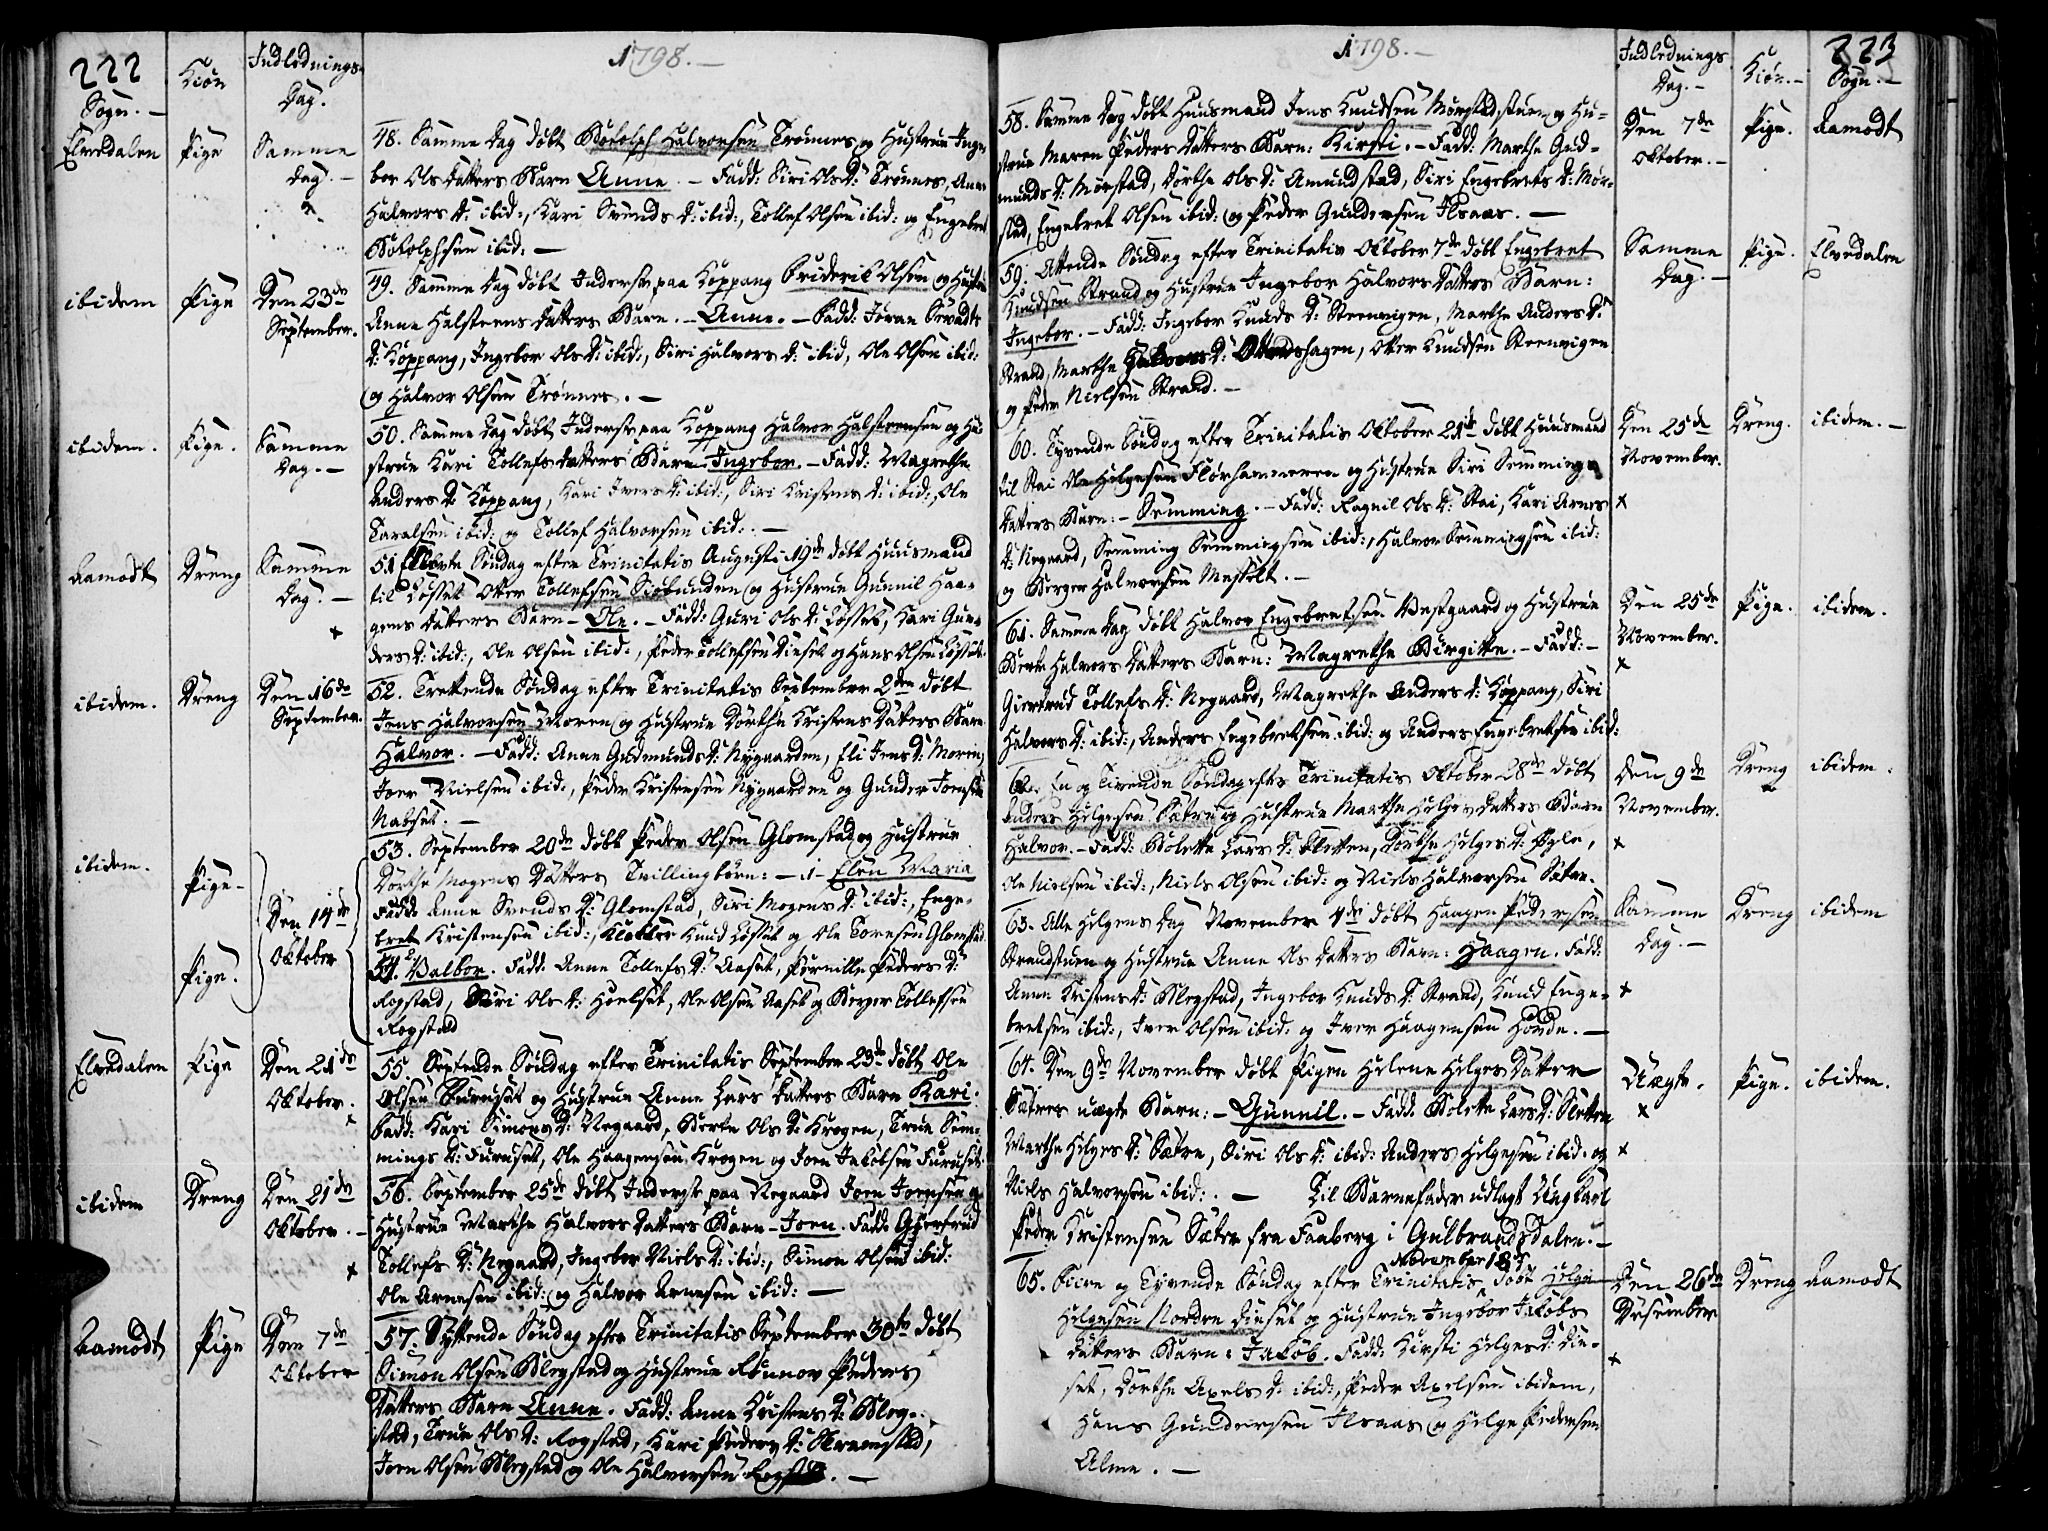 222
Sogn. –
Kiøn
Indlednings
Dag.
1798. –
Elvedalen
Pige
Samme
Dag. –
48. Samme Dag døbt Bodolph Halvorsen Trønnes og Hustrue Inge-
bor Ols Datters Barn Anne. – Fadd: Siri Ols D: Trønnes, Anne
Halvors D: ibid:, Kari Svends D: ibid:, Tollef Olsen ibid: og Engebret
Bodolphsen ibid: –
ibidem
Pige
Den 23de
September.
49. Samme Dag døbt Inderst paa Koppang Friderik Olsen og Hustrue
Anne Halsteens Datters Barn. – Anne. – Fadd: Joran Sevadts
D: Koppang, Ingebor Ols D: ibid:, Siri Halvors D: ibid, Ole Olsen ibid:
og Halvor Olsen Trønnes. –
ibidem.
Pige.
Samme
Dag. –
50. Samme Dag døbt Inderst paa Koppang Halvor Halsteensen og Hu-
strue Kari Tollefs Datters Barn Ingebor. – Fadd: Magrethe
Anders D: Koppang, Kari Ivers D: ibid:, Siri Kristens D: ibid:, Ole
Taralsen ibid: og Tollef Halvorsen ibid: –
Aamodt
Dreng
Samme
Dag. –
51 Ellevte Søndag efter Trinitatis Augusti 19de døbt Huusmand
til Løsset Otter Tollefsen Siøbunden og Hustrue Gunnil Haa-
gens Datters Barn – Ole. – Fadd: Guri Ols D: Løsset, Kari Gun-
ders D: ibid:, Ole Olsen ibid:, Peder Tollefsen Dieset og Hans Olsen Løsset.
ibidem.
Dreng
Den 16de
September.
52. Trettende Søndag efter Trinitatis September 2den døbt
Jens Halvorsen Moren og Hustrue Dorthe Kristens Datters Barn
Halvor. – Fadd: Anne Gudmunds D: Nygaarden, Eli Jens D: Moren,
Joer Nielsen ibid:, Peder Kristensen Nygaarden og Gunder Joensen
Nabset. –
ibidem.
Pige –
Pige.
Den 14de
Oktober
53. September 20de døbt Peder Olsen Glomstad og Hustrue
Dorthe Mogens Datters Tvillingbørn: – 1 – Elen Maria
Fadd: Anne Svends D: Glomstad, Siri Mogens D: ibid:, Enge-
bret Kristensen ibid:, Klokker Knud Løsset og Ole Toresen Glomstad.
54. 2 Valbor. Fadd: Anne Tollefs D: Aaset, Pernille Peders D:
Rogstad, Siri Ols D: Hoelset, Ole Olsen Aaset og Berger Tollefsen
Rogstad
Elvedalen
Pige
Den 21de
Oktober.
55. Septende Søndag efter Trinitatis September 23de døbt Ole
Olsen Furuset og Hustrue Anne Lars Datters Barn Kari.
Fadd: Kari Simons D: Negaard, Berte Ols D: Krogen, Trine Sem-
mings D: Furuset, Ole Haagensen Krogen og Joen Jakobsen Furuset.
ibidem
Dreng
Den 21de
Oktober. –
56. September 25de døbt Inderst paa Negaard Joen Joensen og
Hustrue Marthe Halvors Datters Barn – Joen. Fadd: Gjertrud
Tollefs D: Negaard, Ingebor Niels D: ibid:, Simon Olsen ibid:
Ole Arnesen ibid: og Halvor Arnesen ibid: –
Aamodt
Pige
Den 7de
Oktober
57. Syttende Søndag efter Trinitatis September 30te døbt
Simon Olsen Blegstad og Hustrue Rønnov Peders
Datters Barn Anne. Fadd: Anne Kristens D: Bleg-
stad, Trine Ols D: Rogstad, Kari Peders D: Stramstad,
Joen Olsen Blegstad og Ole Halvorsen –
1798. –
Indlednings
Dag. –
Kiøn. –
223
Sogn. –
58. Samme Dag døbt Huusmand Jens Knudsen Mørstadstuen og Hu-
strue Maren Peders Datters Barn: Kirsti. – Fadd: Marthe Gud-
munds D: Mørstad, Dorthe Ols D: Amundstad, Siri Engebrets D: Mør-
stad, Engebret Olsen ibid: og Peder Gundersen Ilsaas. –
Den 7de
Oktober. –
Pige.
Aamodt
59. Attende Søndag efter Trinitatis Oktober 7de døbt Engebret
Knudsen Strand og Hustrue Ingebor Halvors Datters Barn:
Ingebor. – Fadd: Ingebor Knuds D: Steenvigen, Marthe Anders D:
Strand, Marthe Halvors D: hagen, Otter Knudsen Steenvigen
og Peder Nielsen Strand. –
Samme
Dag. –
Pige.
Elvedalen
60. Tyvende Søndag efter Trinitatis Oktober 21de døbt Huusmand
til Stai Ole Helgesen Flørhammeren og Hustrue Siri Semmings
Datters Barn: – Semming. – Fadd: Ragnil Ols D: Stai, Kari Arnes
D: Negaard, Semming Semmingsen ibid:, Halvor Semmingsen ibid:
og Berger Halvorsen Messelt. –
Den 25de
November.
Dreng.
ibidem. –
61. Samme Dag døbt Halvor Engebretsen Vestgaard og Hustrue
Berte Halvors Datters Barn: Magrethe Birgitte. – Fadd: –
Giertrud Tollefs D: Negaard, Magrethe Anders D: Koppang, Siri
Halvors D: ibid:, Anders Engebretsen ibid: og Anders Engebretsen ibid:
Den 25de
November.
Pige.
ibidem.
62. En og Tivende Søndag efter Trinitatis Oktober 28de døbt
Anders Helgesen Sætre og Hustrue Marthe Helges Datters Barn
Halvor. – Fadd: Bolette Lars D: Sletten, Dorthe Helges D: Øgle,
Ole Nielsen ibid:, Niels Olsen ibid: og Niels Halvorsen Sætre.
Den 9de
November.
Dreng
ibidem.
63. Alle Helgens Dag November 4de døbt Haagen Pedersen
Strandstuen og Hustrue Anne Ols Datters Barn: Haagen. Fadd:
Anne Kristens D: Blegstad, Ingebor Knuds D: Strand, Knud Enge-
bretsen ibid:, Iver Olsen ibid: og Iver Haagensen Hovde. –
Samme
Dag. –
Dreng
ibidem
64. Den 9de November døbt Pigen Helene Helges Datter
Sætres uægte Barn: – Gunnil. – Fadd: Bolette Lars D: Sletten
Marthe Helges D: Sætre, Siri Ols D: ibid: Anders Helgesen ibid: og
Niels Halvorsen ibid: – Til Barnefader udlagt Ungkarl
Peder Kristensen Sæter fra Faaberg i Gulbrandsdalen. –
Uægte.
Pige.
ibidem.
65. Fiire og Tyvende Søndag efter Trinitatis November 18de døbt Helge
Helgesen Nordre Dieset og Hustrue Ingebor Jakobs
Datters Barn: Jakob. Fadd: Kirsti Helges D: Die-
set, Dorthe Axels D: ibid:, Peder Axelsen ibidem,
Hans Gundersen Ilsaas og Helge Pedersen
Alme. –
Den 26de
Desember
Dreng
Aamodt